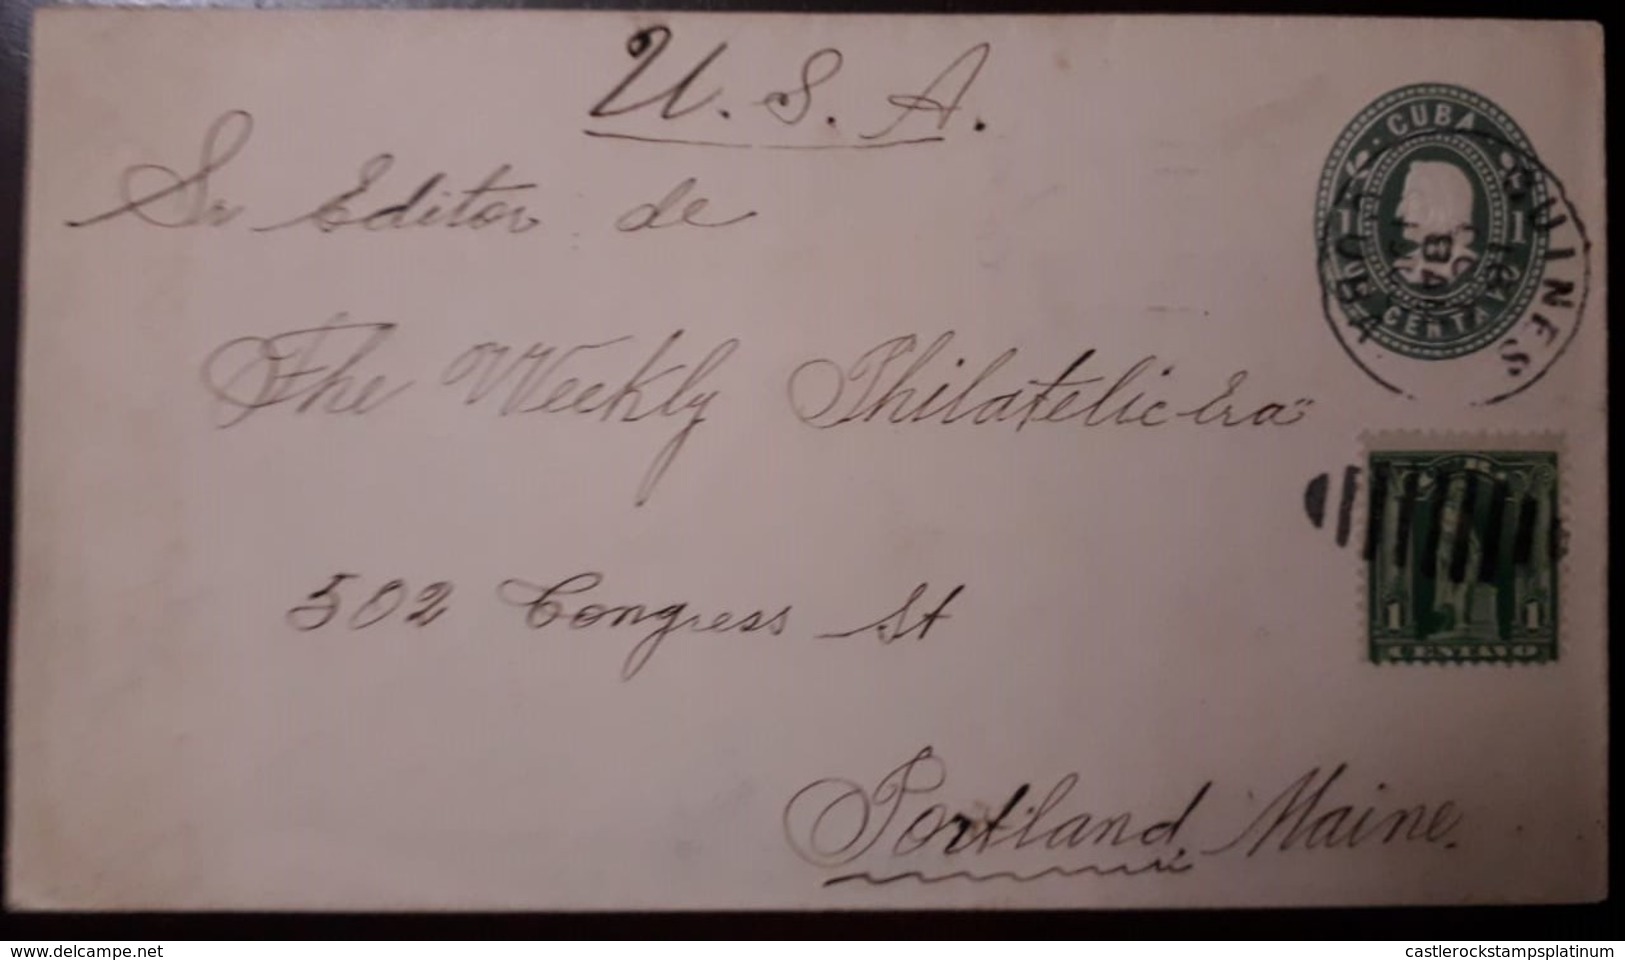 U. S. A.
Sr Editor de
The Weekly Philatelic Era"
502 Congress St
Portland, Maine.
CUBA
1 1
CENTAVO
GUINES
1 1
CENTAVO
delcampe.net
castlerockstampsplatinum